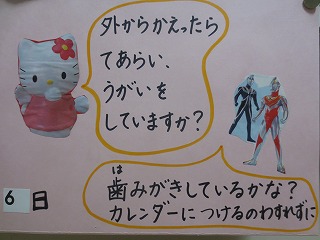 外からかえったら
てあらい、
うがいを
していますか?
は
歯みがきしているかな?
カレンダーにつけるのわすれずに
6日